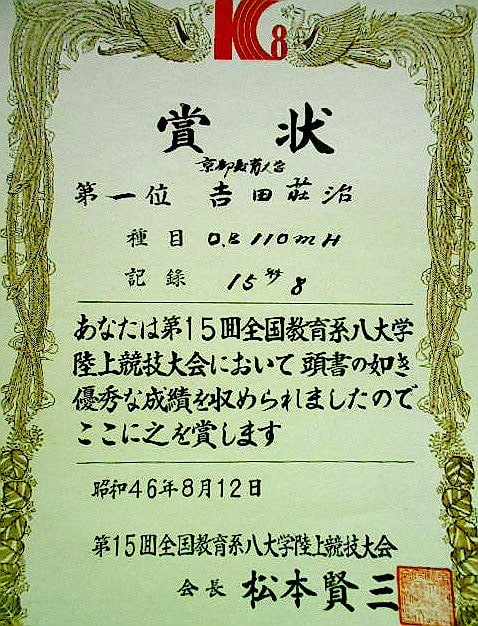 K8
賞状
京都教育大
第一位 吉田荘治
種目 O.B 110mH
記録 15秒8
あなたは第15回全国教育系八大学
陸上競技大会において頭書の如き
優秀な成績を収められましたので
ここに之を賞します
昭和46年8月12日
第15回全国教育系八大学陸上競技大会
会長 松本賢三